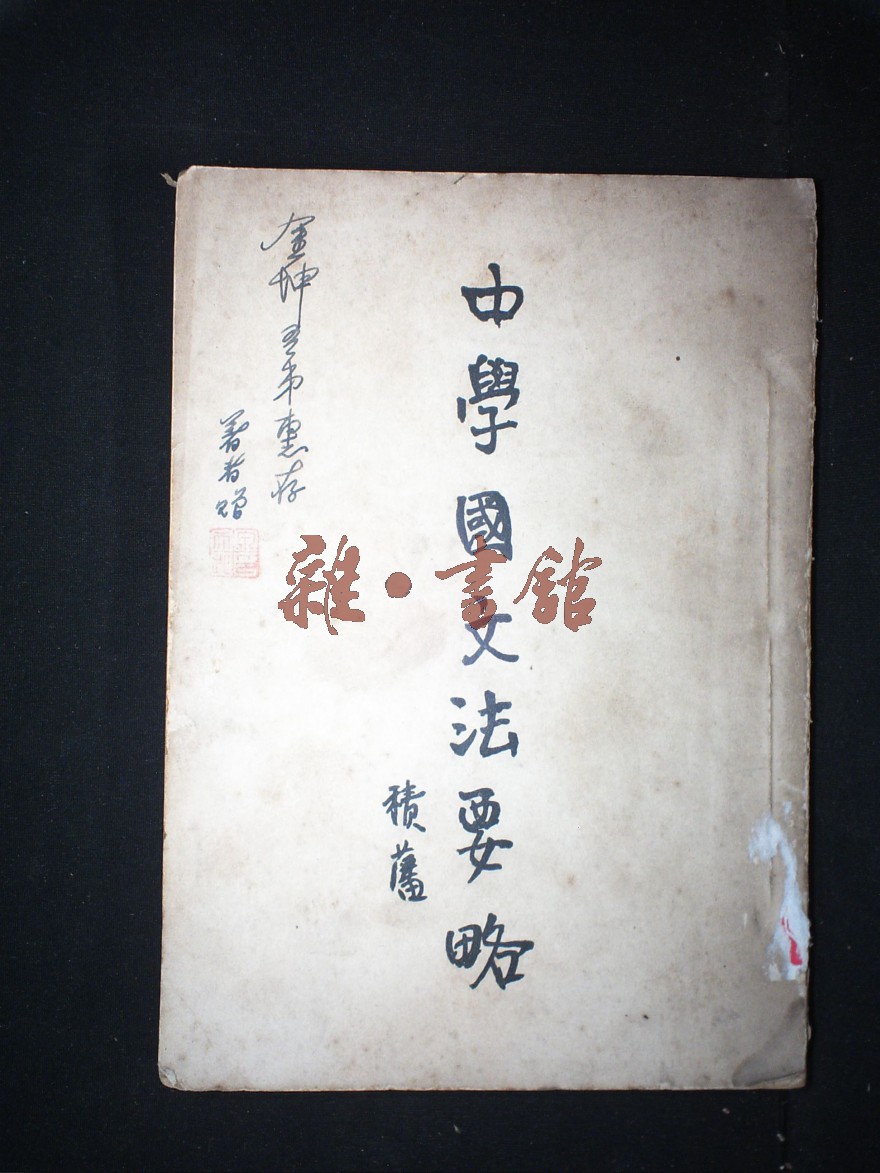 中學國文法要略
積藩
金坤吾弟惠存
著者贈
雜·書館